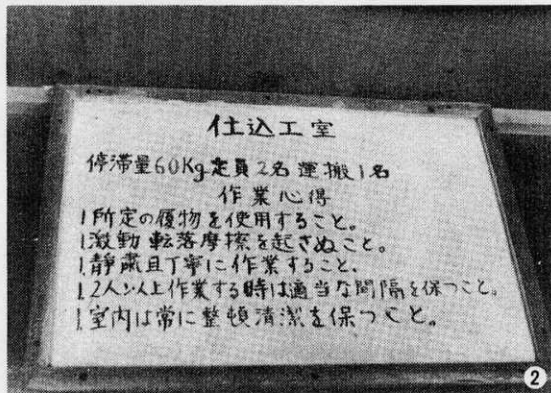 仕込工室
停滞量60Kg定員2名運搬1名
作業心得
1.所定の履物を使用すること。
1.激動転落摩擦を起さぬこと。
1.静粛且丁寧に作業すること.
1.2人以上作業する時は適当な間隔を保つこと。
1.室内は常に整頓清潔を保つこと。
2